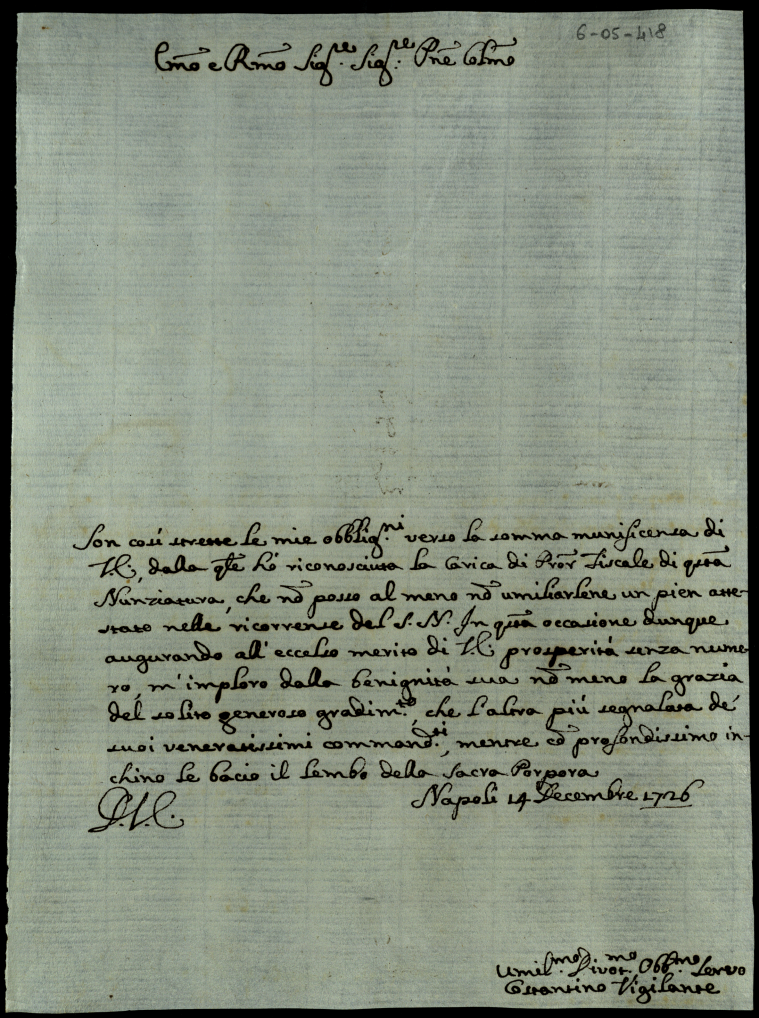 6-05-418
Emo e Rmo Sig.re Sig.re Pne Colmo
Son così strette le mie obblig.ni verso la somma munificenza di
V.E., dalla qle hò riconosciuta la Carica di Pror Fiscale di qsta
Nunziatura, che nõ posso al meno nõ umiliarlene un pien atte-
stato nelle ricorrenze del S. N. In qsta occasione dunque
augurando all'eccelso merito di V.E. prosperità senza nume-
ro, m'imploro dalla benignità sua nõ meno la grazia
del solito generoso gradim.to, che l'altra più segnalata de'
suoi veneratissimi command.ti, mentre cõ profondissimo in-
chino le bacio il lembo della Sacra Porpora
Napoli 14 Decembre 1726
D.V.E.
Umil.mo Divot.mo Obb.mo Servo
Costantino Vigilante